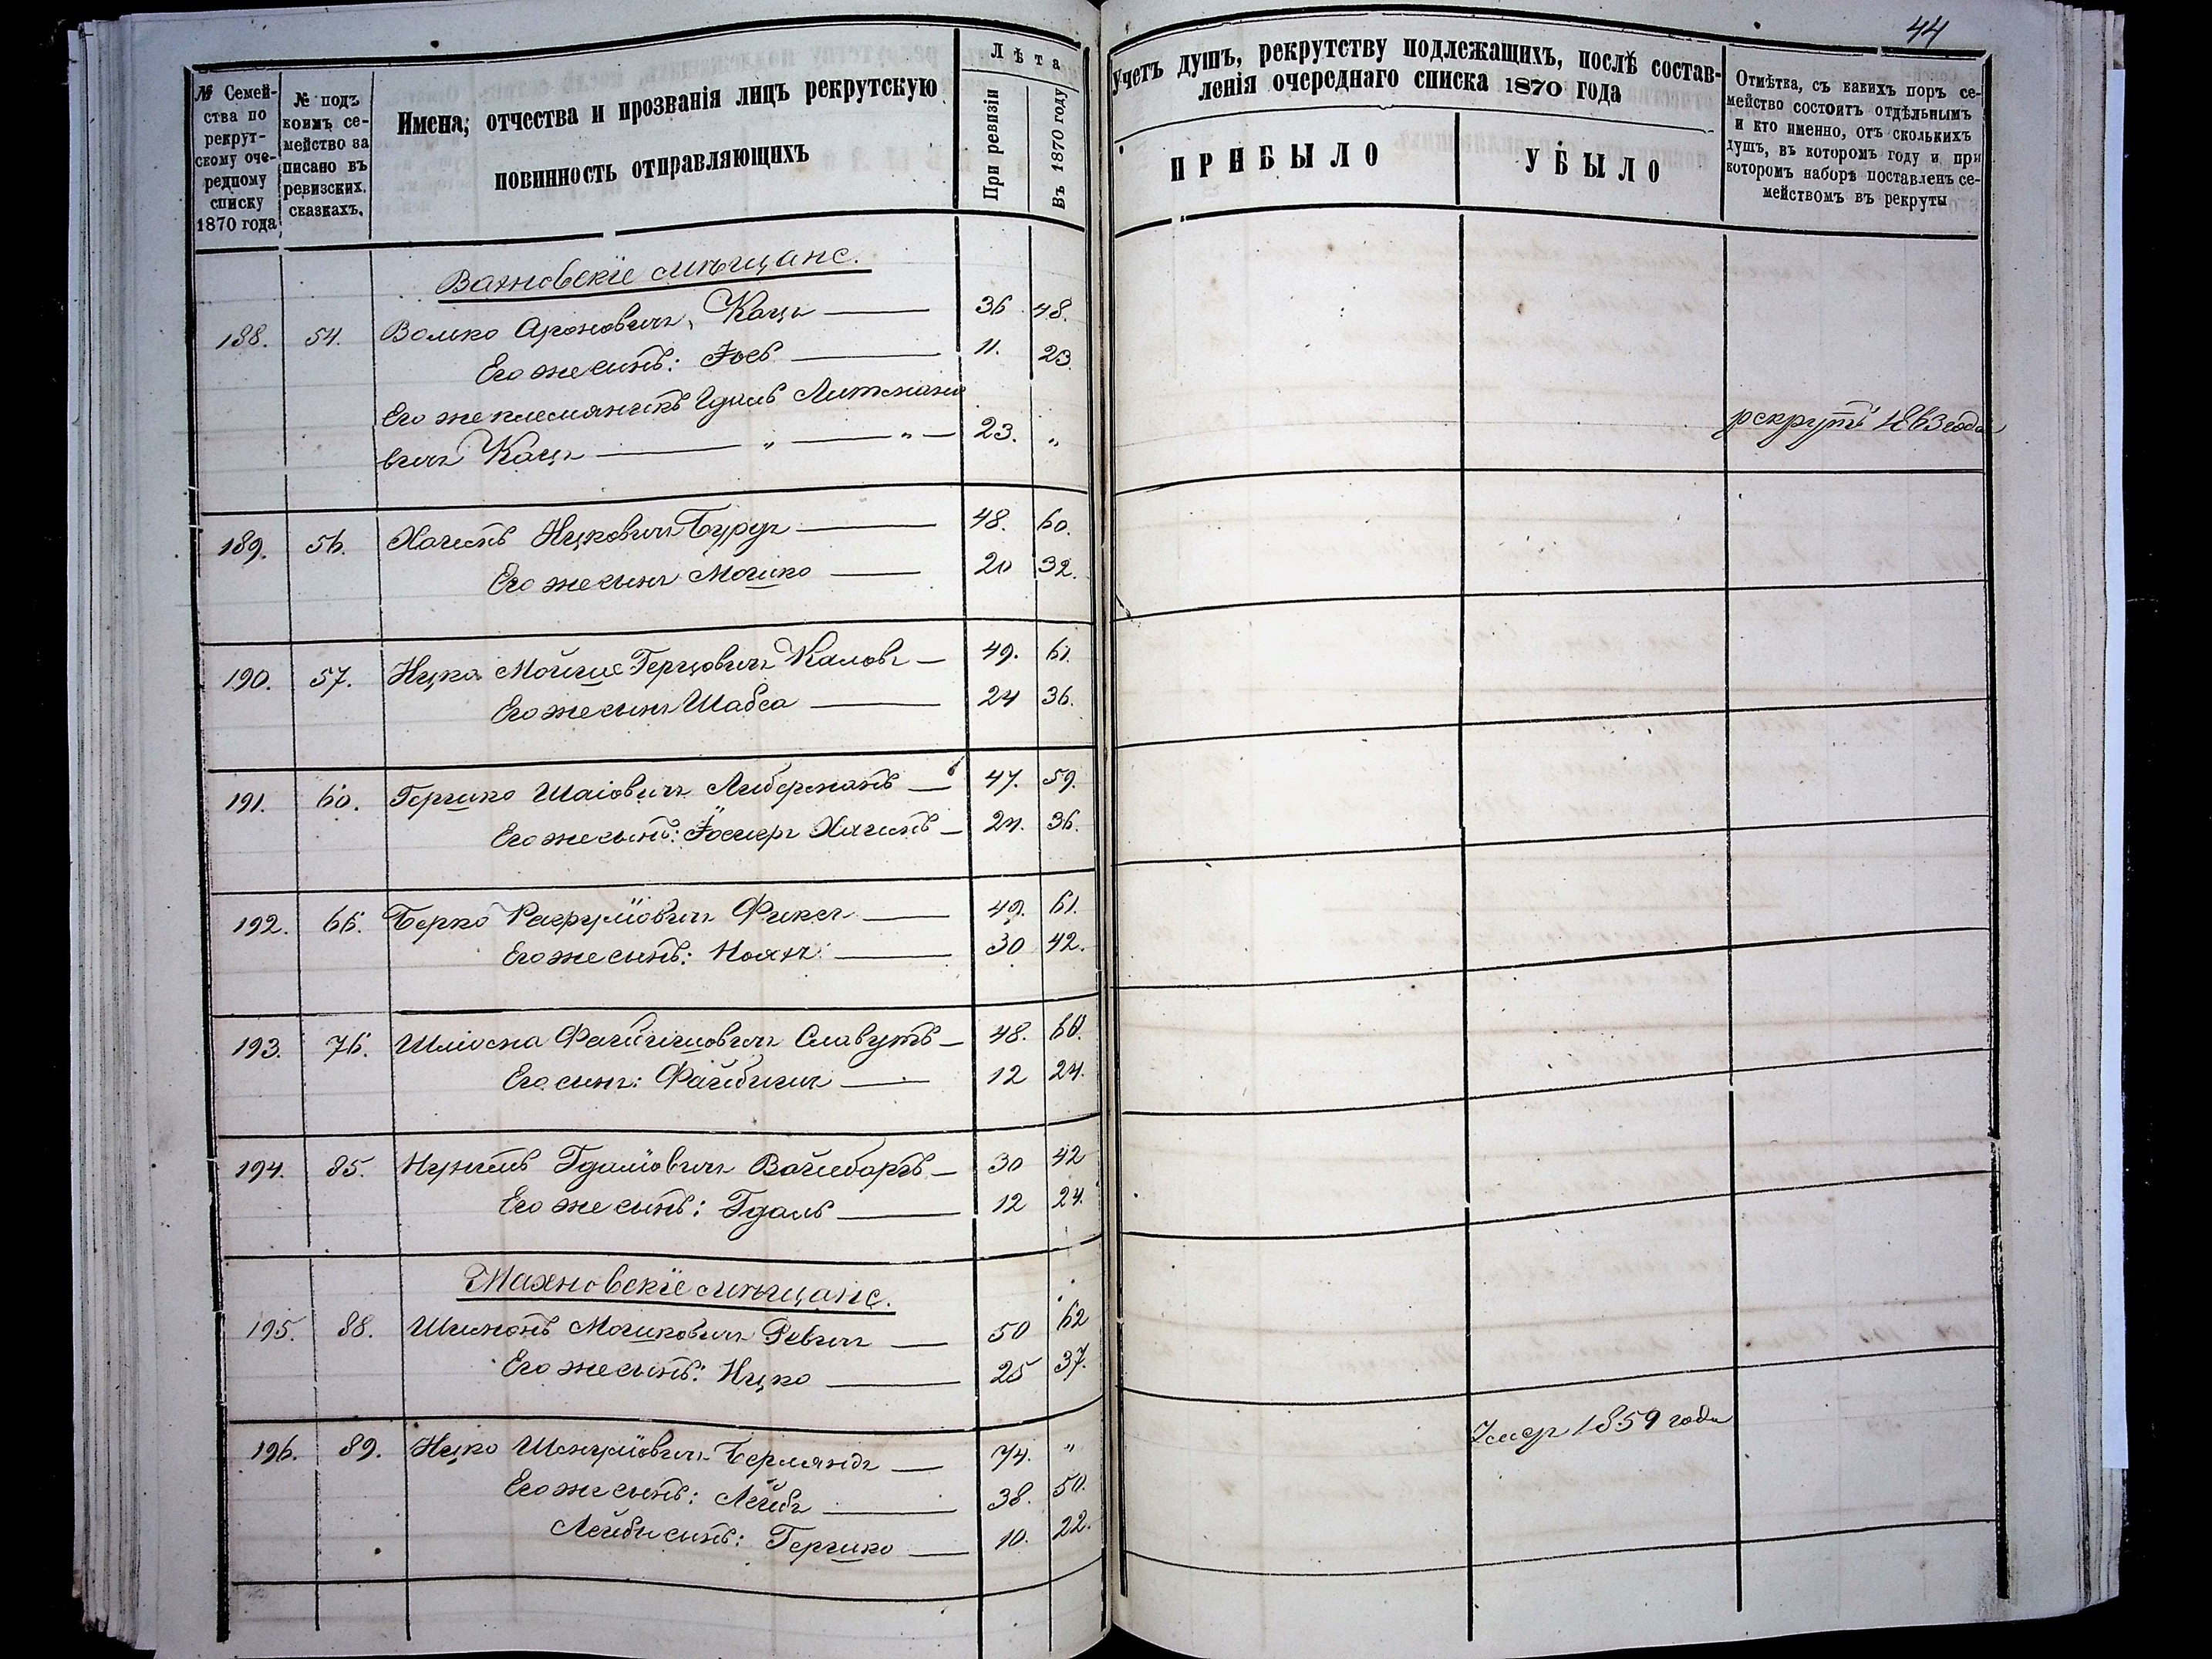 44
№ Семей-
ства по
рекрут-
скому оче-
редному
списку
1870 года
№ подъ
коимъ се-
мейство за
писано въ
ревизскихъ
сказкахъ.
Имена, отчества и прозванія лицъ рекрутскую
повинность отправляющихъ
Лѣта
При ревизіи
Въ 1870 году
Учетъ душъ, рекрутству подлежащихъ, послѣ состав-
ленія очереднаго списка 1870 года
ПРИБЫЛО
УБЫЛО
Отмѣтка, съ какихъ поръ се-
мейство состоитъ отдѣльнымъ
и кто именно, отъ сколькихъ
душъ, въ которомъ году и при
которомъ наборѣ поставленъ се-
мействомъ въ рекруты
Вахновскіе мѣщане.
188. 54. Волько Ароновичъ Кацъ — 36 48.
Его же сынъ: Іось — 11. 23.
Его же племянникъ Гдаль Литмано
вичъ Кацъ — „ — „ — 23. „ рекрутъ 1863 года
189. 56. Хаимъ Ицковичъ — 48. 60.
Его же сынъ Мошко — 20 32.
190. 57. Ицко Мойше Герцовичъ — 49. 61.
Его же сынъ Шабса — 24 36.
191. 60. Гершко Шаіовичъ Либерманъ — 47. 59.
Его же сынъ: Хаимъ — 24. 36.
192. 66. Берко Фиксъ — 49. 61.
Его же сынъ: — 30 42.
193. 76. Шліома Файбишовичъ Славутъ — 48. 60.
Его сынъ: Файбишъ — 12 24.
194. 85. Нухимъ Гдалiовичъ — 30 42
Его же сынъ: Гдаль — 12 24.
Махновскіе мѣщане.
195. 88. Шимонъ Мошковичъ — 50 62
Его же сынъ: Ицко — 25 37.
196. 89. Ицко Шмулiовичъ Берляндъ — 74. „ Умер 1859 года
Его же сынъ: Лейбъ — 38. 50.
Лейбы сынъ: Гершко — 10. 22.